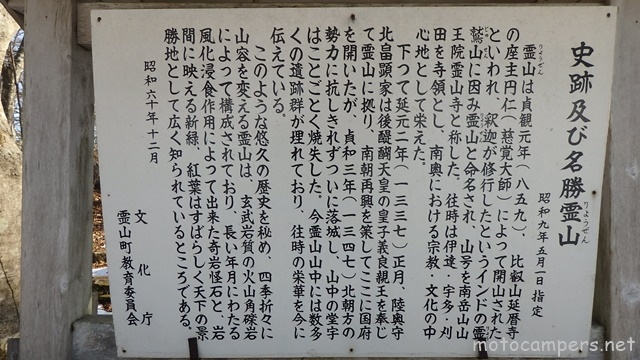 史跡及び名勝霊山
りょうぜん
昭和九年五月一日指定
りょうぜん
霊山は貞観元年(八五九)、比叡山延暦寺
の座主円仁(慈覚大師)によって開山された
といわれ、釈迦が修行したというインドの霊
鷲山に因み霊山と命名され、山号を南岳山山
王院霊山寺と称した。往時は伊達・宇多・刈
田を寺領とし、南奥における宗教・文化の中
心地として栄えた。
下つて延元二年(一三三七)正月、陸奥守
北畠顕家は後醍醐天皇の皇子義良親王を奉じ
て霊山に拠り、南朝再興を策してここに国府
を開いたが、貞和三年(一三四七)北朝方の
勢力に抗しきれずついに落城し、山中の堂宇
はことごとく焼失した。今霊山山中には数多
くの遺跡群が埋れており、往時の栄華を今に
伝えている。
このような悠久の歴史を秘め、四季折々に
山容を変える霊山は、玄武岩質の火山角礫岩
によって構成されており、長い年月にわたる
風化浸食作用によって出来た奇岩怪石と、岩
間に映える新緑、紅葉はすばらしく天下の景
勝地として広く知られているところである。
昭和六十年十二月
文化庁
霊山町教育委員会
motocampers.net